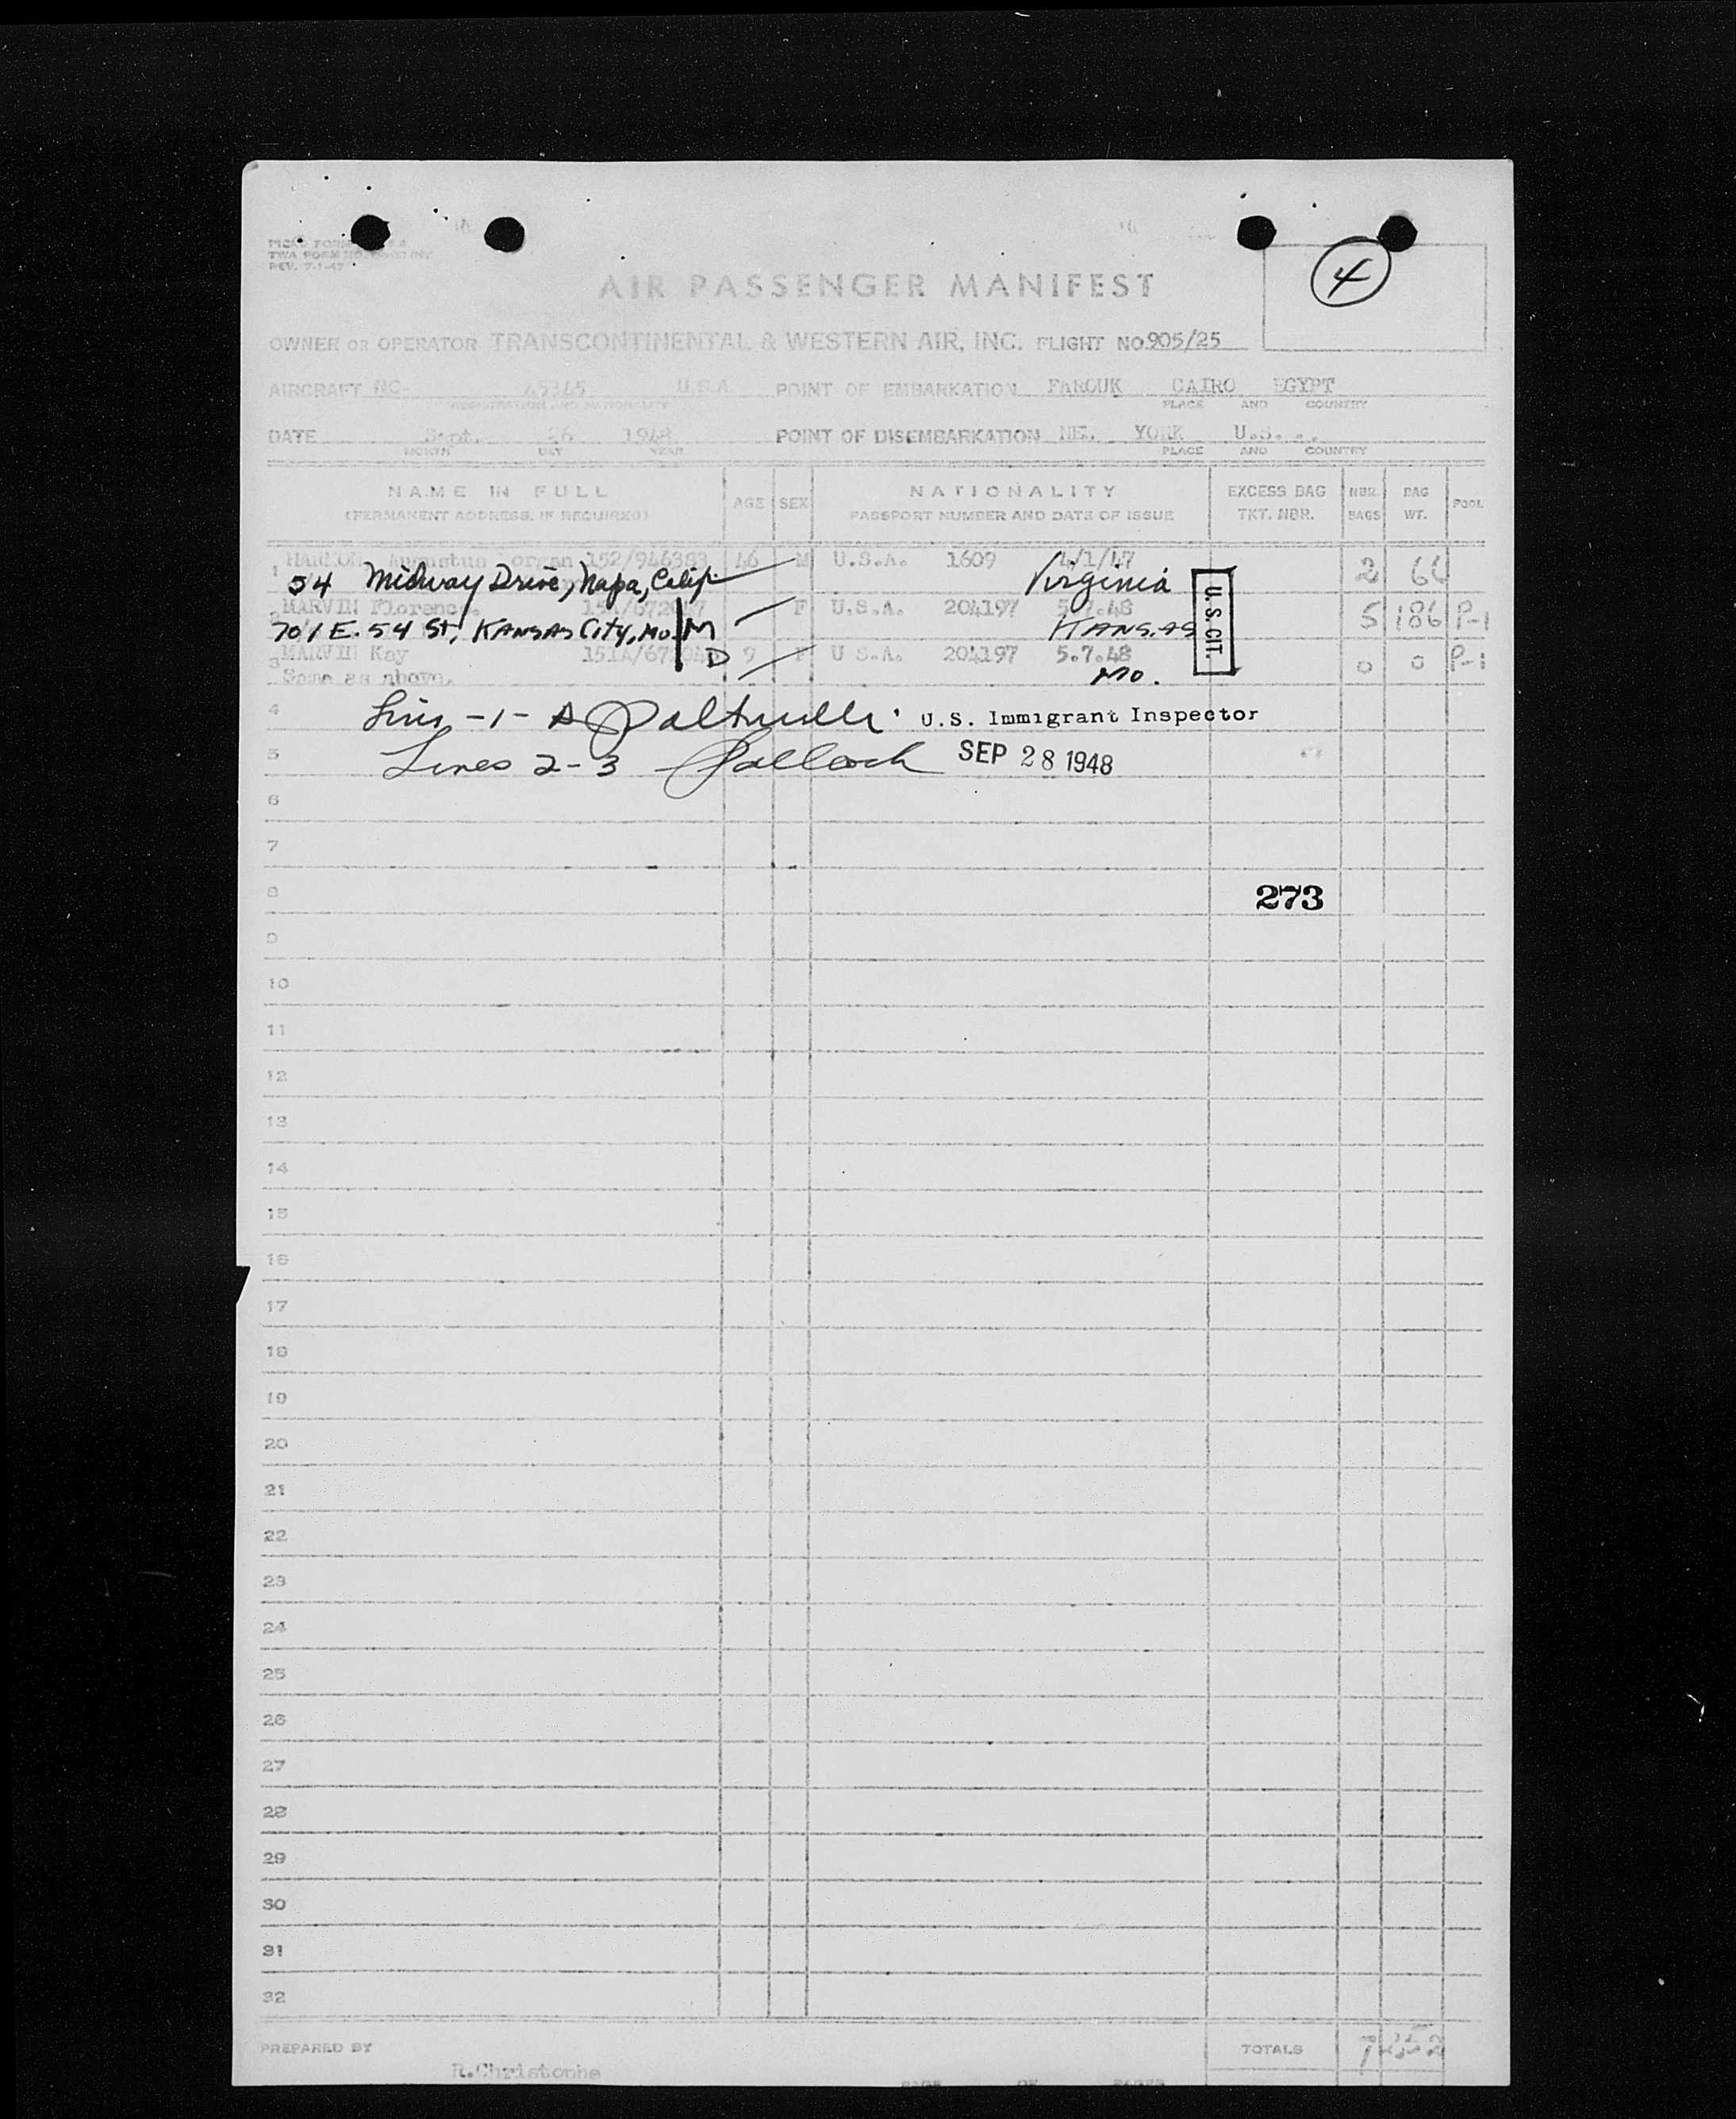 TWA FORM
REV. 7-1-47
4
AIR PASSENGER MANIFEST
OWNER OR OPERATOR TRANSCONTINENTAL & WESTERN AIR, INC. FLIGHT NO. 905/25
AIRCRAFT NC- 45345 U.S.A. POINT OF EMBARKATION FAROUK CAIRO EGYPT
REGISTRATION AND NATIONALITY PLACE AND COUNTRY
DATE Sept. 26 1948 POINT OF DISEMBARKATION YORK
MONTH DAY YEAR PLACE AND COUNTRY
NAME IN FULL AGE SEX NATIONALITY EXCESS BAG NBR. BAG POOL
(PERMANENT ADDRESS, IF REQUIRED) PASSPORT NUMBER AND DATE OF ISSUE TKT. NBR. BAGS WT.
1 Augustus 152/946383 46 M U.S.A. 1609 4/1/47 2
54 Midway Drive, Napa, Calif. Virginia
MARVIN Florence. F U.S.A. 204197 5 186 P-1
701 E. 54 St, KANSAS City, Mo. M KANSAS
3 MARVIN Kay D 9 F U S.A. 204197 5.7.48 0 0 P-1
Same as above. Mo.
U.S. CIT.
4 -1- U.S. Immigrant Inspector
5 Lines 2-3 Pollock SEP 28 1948
6
7
8 273
9
10
11
12
13
14
15
16
17
18
19
20
21
22
23
24
25
26
27
28
29
30
31
32
PREPARED BY R.Christophe TOTALS 7 252
PAGE OF PAGES